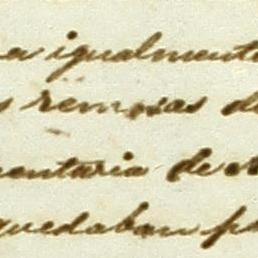 a igualmente
s remesas de
mentaria de
quedaban pa